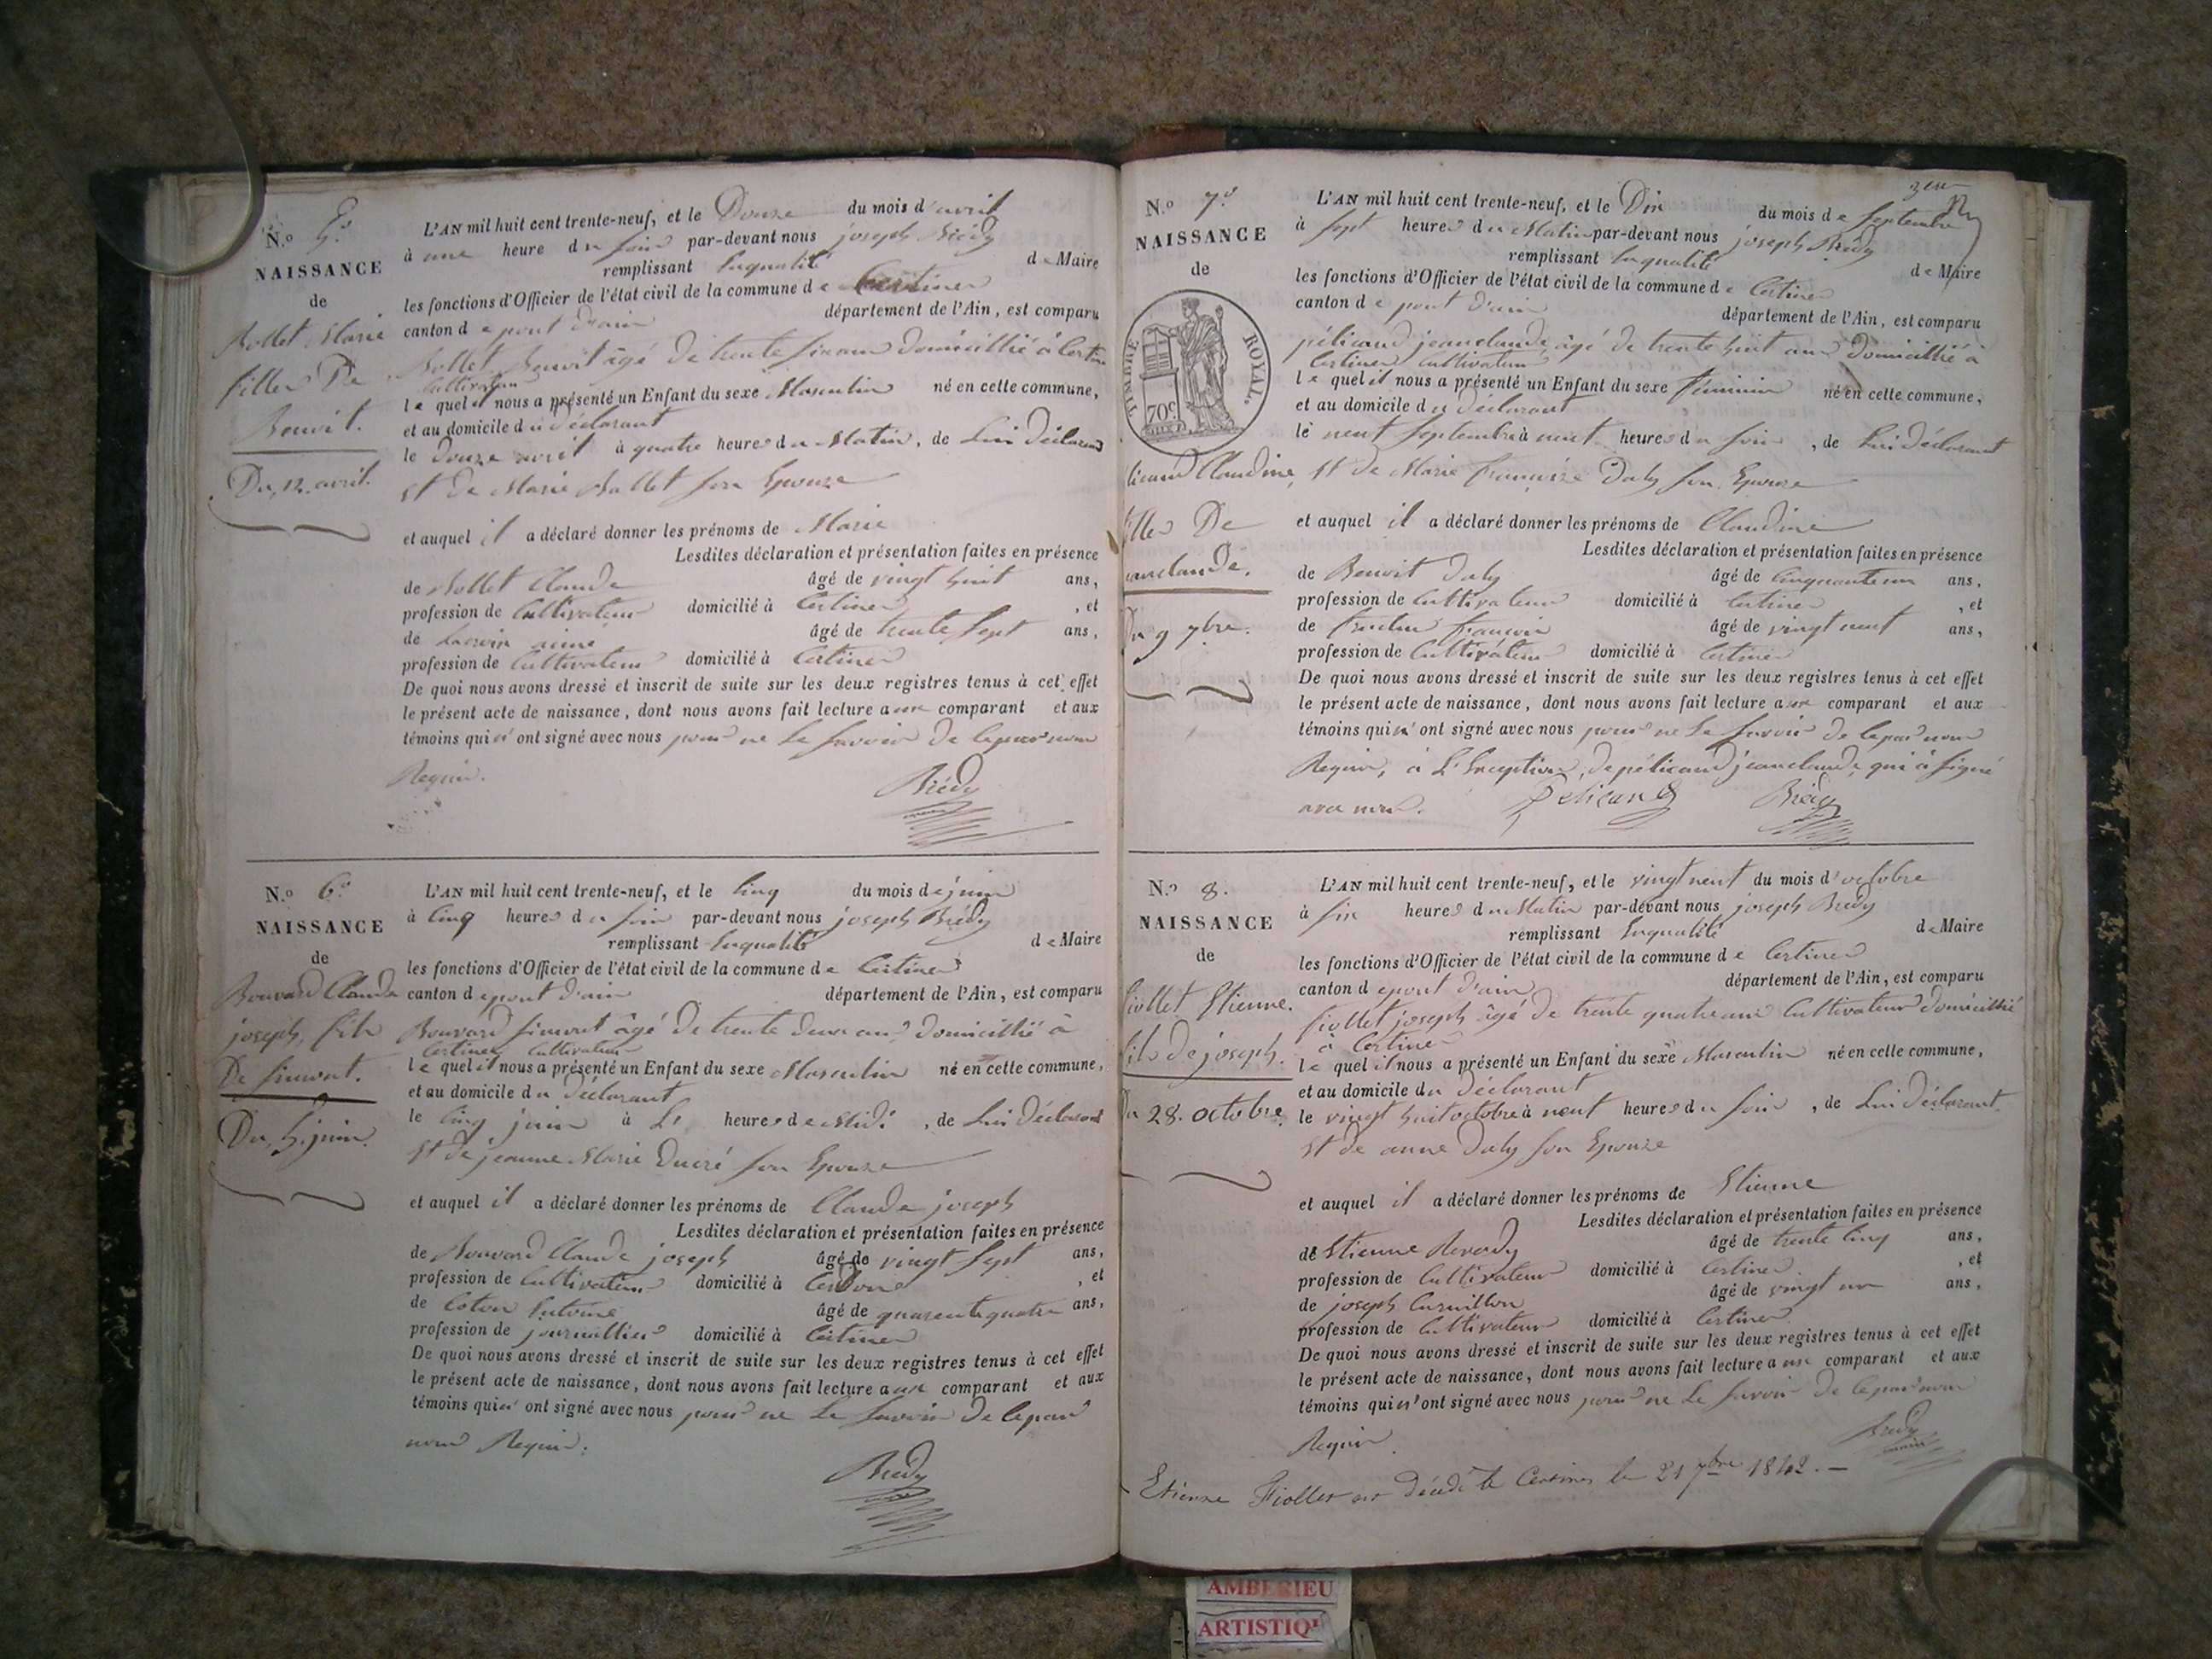 N.º 5.º
NAISSANCE
de
Rollet Marie
fille De
Benoit.
Du 12. avril.
L'AN mil huit cent trente-neuf, et le Douze du mois d'avril
à une heure du soir par-devant nous joseph Brédy
remplissant Enqualité de Maire
les fonctions d'Officier de l'état civil de la commune de Certines
canton de pont d'ain département de l'Ain, est comparu
Rollet Benoit âgé De trente six ans Domicillié à Certines
Cultivateur
le quel il nous a présenté un Enfant du sexe Masculin né en cette commune,
et au domicile du déclarant
le Douze avril à quatre heures du Matin, de Lui Déclarant
Et De Marie Rollet son Epouze
et auquel il a déclaré donner les prénoms de Marie
Lesdites déclaration et présentation faites en présence
de Rollet Claude âgé de vingt huit ans,
profession de Cultivateur domicilié à Certines, et
de âgé de trente sept ans,
profession de Cultivateur domicilié à Certines
De quoi nous avons dressé et inscrit de suite sur les deux registres tenus à cet effet
le présent acte de naissance, dont nous avons fait lecture aux comparant et aux
témoins qui n'ont signé avec nous pour ne Le savoir De Cepar nous
Requis.
Brédy
N.º 6.º
NAISSANCE
de
Bouvard Claude
joseph, fils
De simont.
Du 5. juin.
L'AN mil huit cent trente-neuf, et le Cinq du mois de juin
à Cinq heures du soir par-devant nous joseph Brédy
remplissant Enqualité de Maire
les fonctions d'Officier de l'état civil de la commune de Certines
canton de pont d'ain département de l'Ain, est comparu
Bouvard simont âgé De trente deux ans Domicillié à
Certines Cultivateur
le quel il nous a présenté un Enfant du sexe Masculin né en cette commune,
et au domicile du Déclarant
le Cinq juin à L' heures de Midi, de Lui Déclarant
Et De jeanne Marie Ducré son Epouze
et auquel il a déclaré donner les prénoms de Claude joseph
Lesdites déclaration et présentation faites en présence
de Bouvard Claude joseph âgé de vingt sept ans,
profession de Cultivateur domicilié à Cerdon, et
de Coton Antoine âgé de quarente quatre ans,
profession de journallier domicilié à Certines
De quoi nous avons dressé et inscrit de suite sur les deux registres tenus à cet effet
le présent acte de naissance, dont nous avons fait lecture aux comparant et aux
témoins qui n'ont signé avec nous pour ne Le savoir De Cepar
nous Requis.
Brédy
N.º 7.º
NAISSANCE
de
TIMBRE ROYAL.
70 c.
licand Claudine,
fille De
jeanclaude.
Du 9 7bre.
L'AN mil huit cent trente-neuf, et le Dix du mois de septembre
à sept heures du Matin par-devant nous joseph Brédy
remplissant Enqualité de Maire
les fonctions d'Officier de l'état civil de la commune de Certines
canton de pont d'ain département de l'Ain, est comparu
pélicand jeanclaude âgé de trente huit ans Domicillié à
Certines Cultivateur
le quel il nous a présenté un Enfant du sexe Féminin né en cette commune,
et au domicile du déclarant
le neuf septembre à neuf heures du soir, de Lui Déclarant
Et De Marie françoise Daby son Epouze
et auquel il a déclaré donner les prénoms de Claudine
Lesdites déclaration et présentation faites en présence
de Benoit Daby âgé de Cinquante un ans,
profession de Cultivateur domicilié à Certines, et
de françois âgé de vingt neuf ans,
profession de Cultivateur domicilié à Certines
De quoi nous avons dressé et inscrit de suite sur les deux registres tenus à cet effet
le présent acte de naissance, dont nous avons fait lecture aux comparant et aux
témoins qui n'ont signé avec nous pour ne Le savoir De Cepar nous
Requis, à L'Exception, de pélicand jeanclaude, qui à signé
avec nous. Pelicand Brédy
N.º 8.
NAISSANCE
de
fiollet Etienne.
fils De joseph.
Du 28. octobre.
L'AN mil huit cent trente-neuf, et le vingt neuf du mois d'octobre
à six heures du Matin par-devant nous joseph Brédy
remplissant Enqualité de Maire
les fonctions d'Officier de l'état civil de la commune de Certines
canton de pont d'ain département de l'Ain, est comparu
fiollet joseph âgé De trente quatre ans Cultivateur Domicillié
à Certines
le quel il nous a présenté un Enfant du sexe Masculin né en cette commune,
et au domicile du Déclarant
le vingt huit octobre à neuf heures du soir, de Lui Déclarant
Et De anne Daby son Epouze
et auquel il a déclaré donner les prénoms de Etienne
Lesdites déclaration et présentation faites en présence
de Etienne âgé de trente Cinq ans,
profession de Cultivateur domicilié à Certines, et
de joseph Curnillon âgé de vingt un ans,
profession de Cultivateur domicilié à Certines
De quoi nous avons dressé et inscrit de suite sur les deux registres tenus à cet effet
le présent acte de naissance, dont nous avons fait lecture aux comparant et aux
témoins qui n'ont signé avec nous pour ne Le savoir De Cepar nous
Requis. Brédy
Etienne Fiollet est décédé à Certines le 21 7bre 1842. —
AMBERIEU
ARTISTIQ